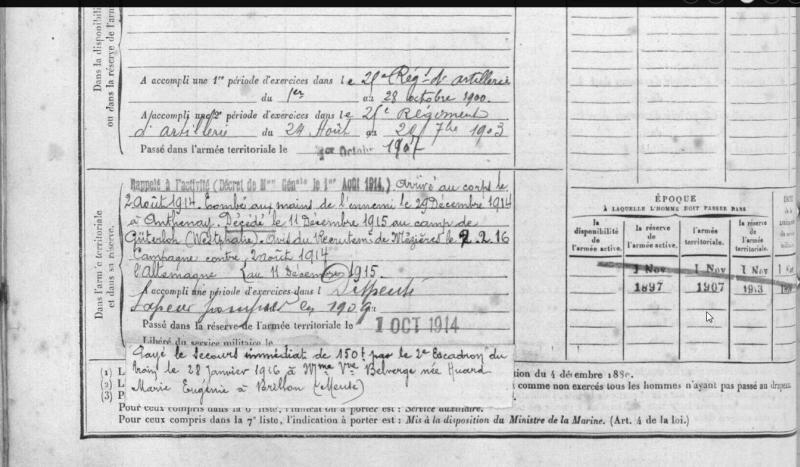 Dans la disponibilité
ou dans la réserve de l'armée
A accompli une 1re période d'exercices dans le 25e Régt d'artillerie
du 1er au 28 octobre 1900.
A accompli une 2e période d'exercices dans le 25e Régiment
d'artillerie du 24 Août au 20 7bre 1903
Passé dans l'armée territoriale le 1er Octobre 1907
Dans l'armée territoriale
et dans sa réserve.
Rappelé à l'activité (Décret de Mon Génale le 1er Août 1914.) Arrivé au corps le
2 Août 1914. Tombé aux mains de l'ennemi le 29 Décembre 1914
à Décédé le 11 Décembre 1915 au camp de
Güterloh (Westphalie). Avis du Recrutemt de Mézières le 2.2.16
Campagne contre 2 août 1914
l'Allemagne au 11 Décembre 1915.
A accompli une période d'exercices dans l Dispensé
Sapeur pompier en 1909
Passé dans la réserve de l'armée territoriale le 1 OCT 1914
Libéré du service militaire le
Payé le Secours immédiat de 150f par le 2e Escadron du
train le 28 Janvier 1916 à Mme Vve Belverge née Huard
Marie Eugénie à Brillon (Meuse)
ÉPOQUE
À LAQUELLE L'HOMME DOIT PASSER DANS
la disponibilité de l'armée active. la réserve de l'armée active. l'armée territoriale. la réserve de l'armée territoriale.
1 Nov 1 Nov 1 Nov 1
1897 1907 1913
(1) L
(2) L
(3) P
tion du 4 décembre 1889.
comme non exercés tous les hommes n'ayant pas passé au drapeau
Pour ceux compris dans la 6e liste, l'indication à porter est : Service auxiliaire.
Pour ceux compris dans la 7e liste, l'indication à porter est : Mis à la disposition du Ministre de la Marine. (Art. 4 de la loi.)